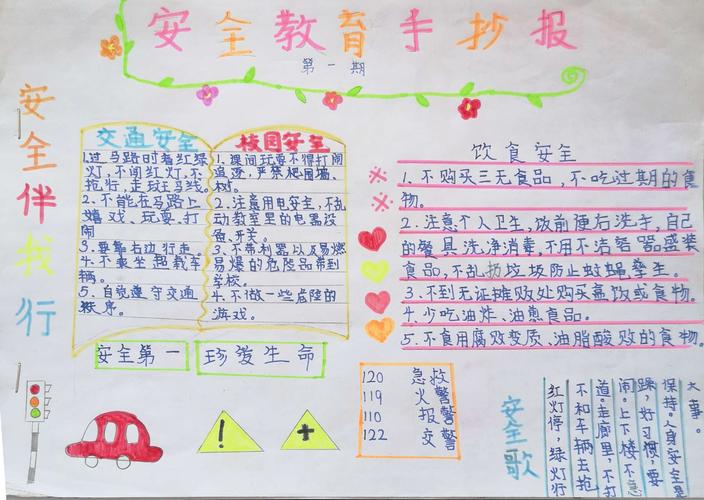 安全教育手抄报
第一期
安全伴我行
交通安全
1.过马路时看红绿
灯,不闯红灯,不
抢行,走斑马线。
2.不能在马路上
嬉戏、玩耍、打
闹
3.要靠右边行走。
4.不乘坐超载车
辆。
5.自觉遵守交通
秩序。
校园安全
1、课间玩耍不得打闹
追逐,严禁爬围墙、
树。
2.注意用电安全,不乱
动教室里的电器设
备、开关。
3、不带利器以及易燃
易爆的危险品带到
学校。
4.不做一些危险的
游戏。
安全第一
珍爱生命
饮食安全
1、不购买三无食品,不吃过期的食
物。
2.注意个人卫生,饭前便后洗手,自己
的餐具洗净消毒,不用不洁容器盛装
食品,不乱扔垃圾防止蚊蝇孳生。
3.不到无证摊贩处购买盒饭或食物。
4.少吃油炸、油煎食品。
5.不食用腐败变质、油脂酸败的食物。
120 急救
119 火警
110 报警
122 交警
安全歌
红灯停,绿灯行
不和车辆去抢
道。走廊里,不打
闹。上下楼不急
躁,好习惯,要
保持。人身安全是
大事。